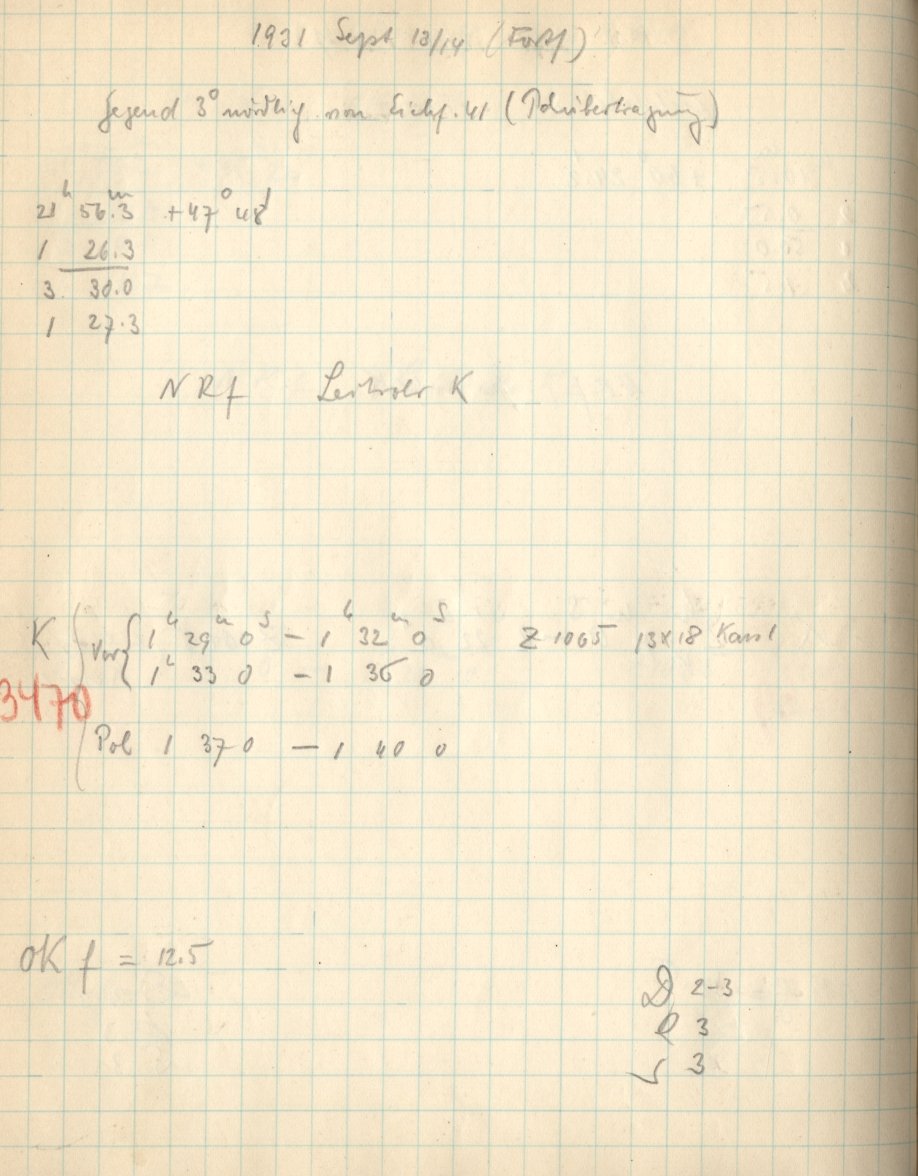 1931 Sept 13/14 (Forts)
Gegend 3° nördlich von Eichf. 41 (Polübertragung)
21ʰ 56.3ᵐ +47° 48'
1 26.3
3 30.0
1 27.3
N Rf Leitrohr K
K Var 1ʰ 29ᵐ 0ˢ – 1ʰ 32ᵐ 0ˢ Z 1065 13x18
1ʰ 33 0 – 1 36 0
3470
Pol 1 37 0 – 1 40 0
OK f = 12.5
D 2-3
l 3
3